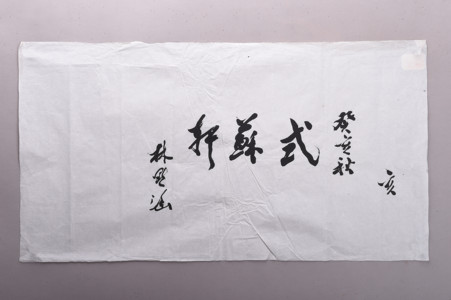 亥
癸亥秋
式蘇軒
林默涵